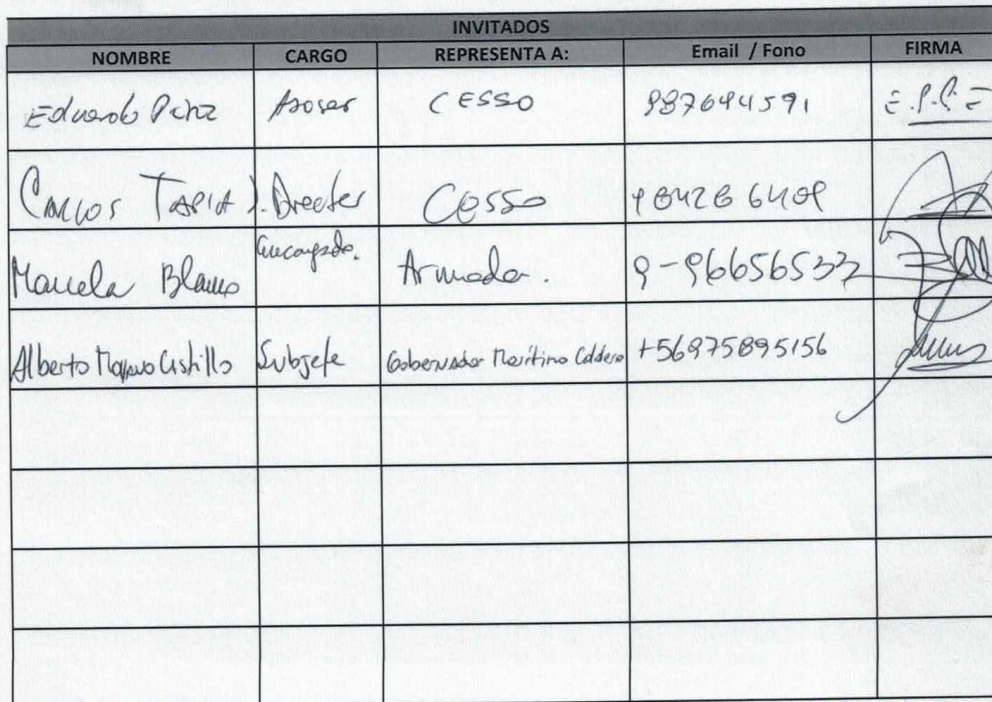 INVITADOS
NOMBRE CARGO REPRESENTA A: Email / Fono FIRMA
Eduardo Pérez Asesor CESSO 987644591 E.P.C
Carlos Tapia J. Director CESSO
Marcela Blanco encargada. Armada. 9-96656533
Alberto Castillo Subjefe Gobernador Marítimo Caldera +56975895156